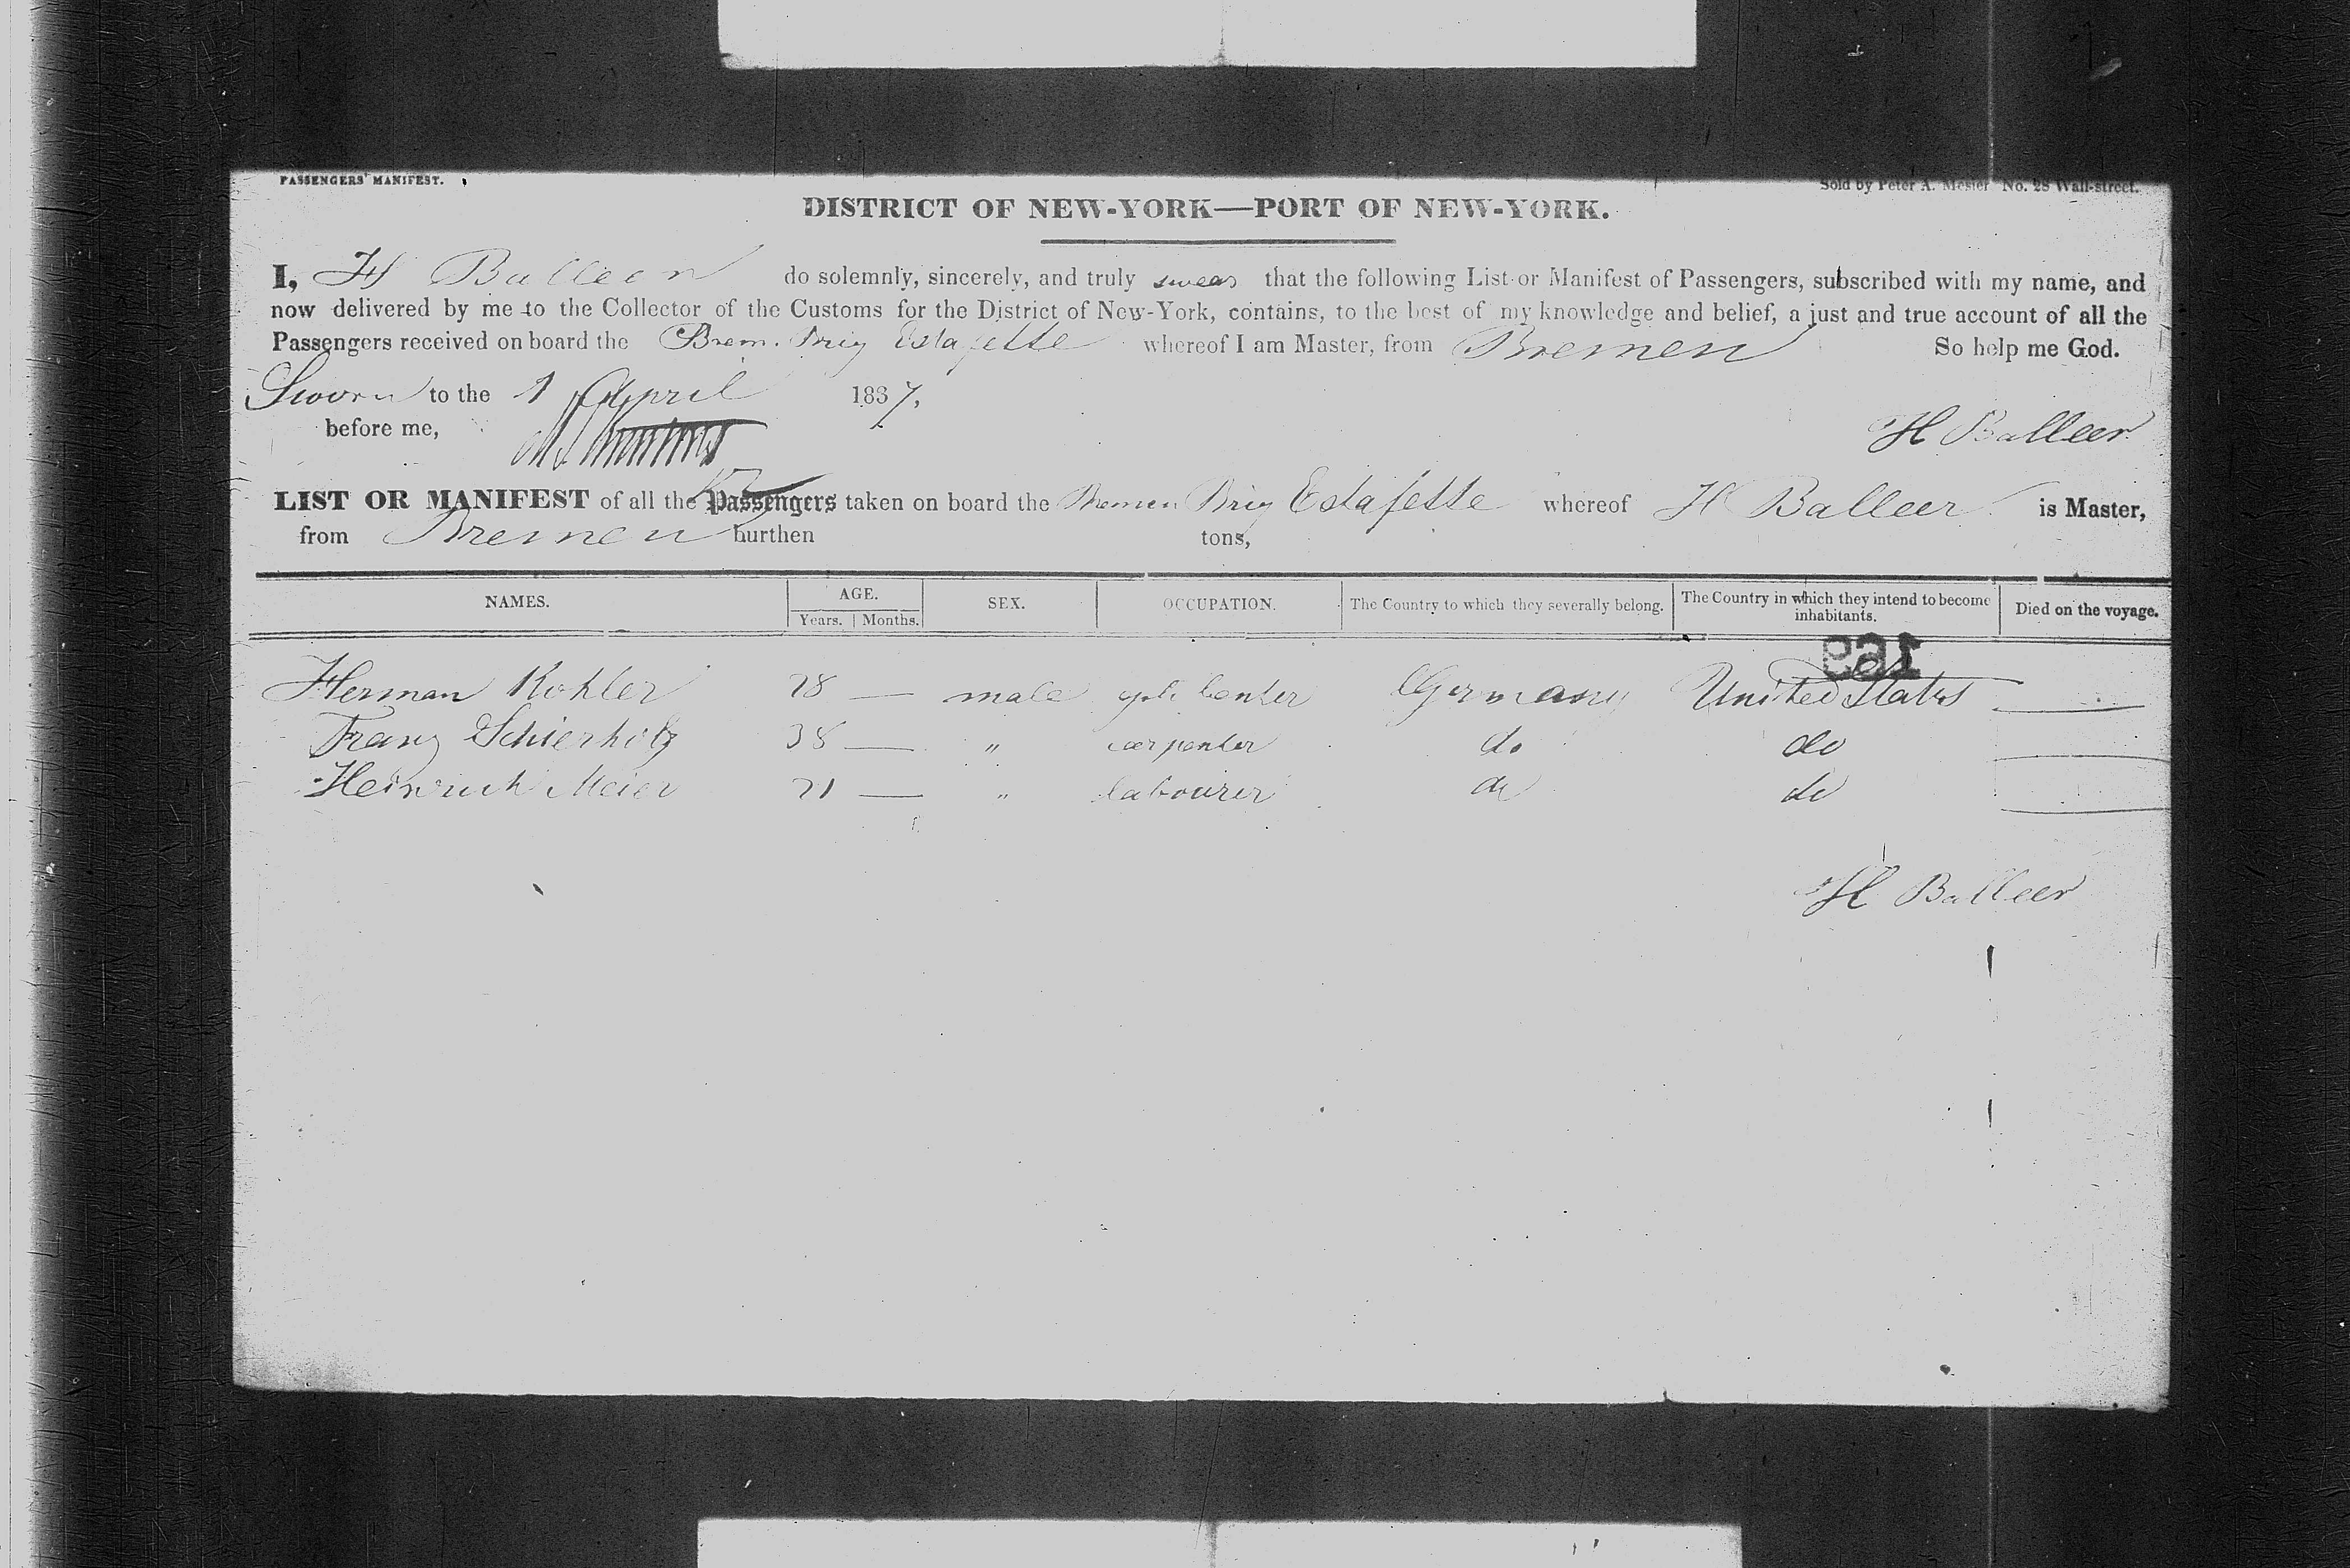 PASSENGERS' MANIFEST.
Sold by Peter A. Mesier No. 28 Wall-street.
DISTRICT OF NEW-YORK—PORT OF NEW-YORK.
I, H Balleer do solemnly, sincerely, and truly swear that the following List or Manifest of Passengers, subscribed with my name, and
now delivered by me to the Collector of the Customs for the District of New-York, contains, to the best of my knowledge and belief, a just and true account of all the
Passengers received on board the Brem. Brig Estafette whereof I am Master, from Bremen So help me God.
Sworn to the 1 April 1837.
before me,
H Balleer
LIST OR MANIFEST of all the Passengers taken on board the Bremen Brig Estafette whereof H Balleer is Master,
from Bremen burthen tons,
NAMES. AGE. SEX. OCCUPATION. The Country to which they severally belong. The Country in which they intend to become inhabitants. Died on the voyage.
Years. Months.
169
Herman Kohler 28 — male Germany United States —
Franz Schierholz 38 — " carpenter do do —
Heinrich Meier 21 — " labourer do do —
H Balleer